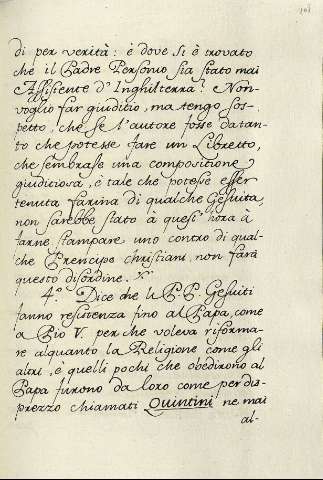 di per verità: è dove si è trovato
che il Padre Personio sia stato mai
Assistente d'Inghilterra? Non
voglio far giuditio, ma tengo sos-
petto, che se l'autore fosse da tan-
to che potesse fare un Libretto,
che sembrase una compositione
giuditiosa, è tale che potesse esser
tenuta farina di qualche Gesuita,
non sarebbe stato à quest' hora à
farne stampare uno contro di qual-
che Prencipe christiani non farà
questo disordine.
4.º Dice che li PP. Gesuiti
fanno resistenza fino al Papa, come
a Pio V. per che voleva riforma-
re alquanto la Religione come gli
altri, e quelli pochi che obedirono al
Papa furono da loro come per dis-
prezzo chiamati Quintini ne mai
al-